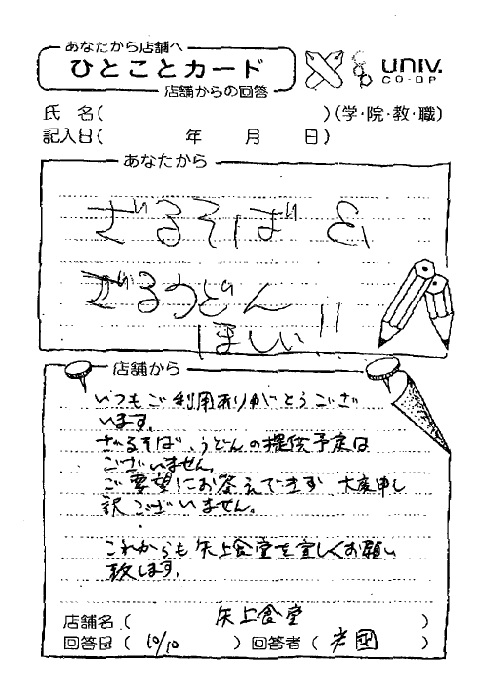 あなたから店舗へ
ひとことカード
店舗からの回答
UNIV.
CO-OP
氏 名( )(学・院・教・職)
記入日( 年 月 日)
あなたから
ざるそば &
ざるうどん
ほしい!!
店舗から
いつもご利用ありがとうござ
います。
ざるそば、うどんの提供予定は
ございません。
ご要望にお答えできず 大変申し
訳ございません。
これからも矢上食堂を宜しくお願い
致します。
店舗名( 矢上食堂 )
回答日( 10/10 ) 回答者( )